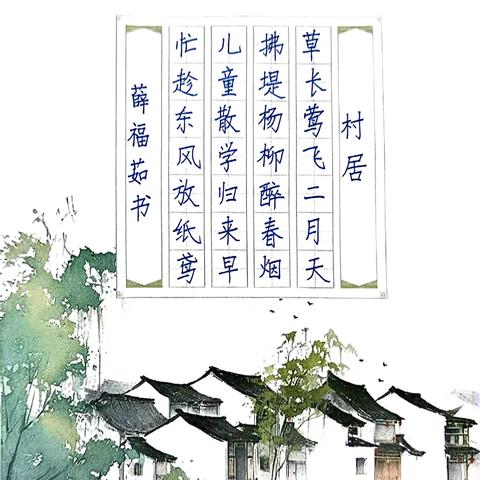 村居
草长莺飞二月天
拂堤杨柳醉春烟
儿童散学归来早
忙趁东风放纸鸢
薛福茹书